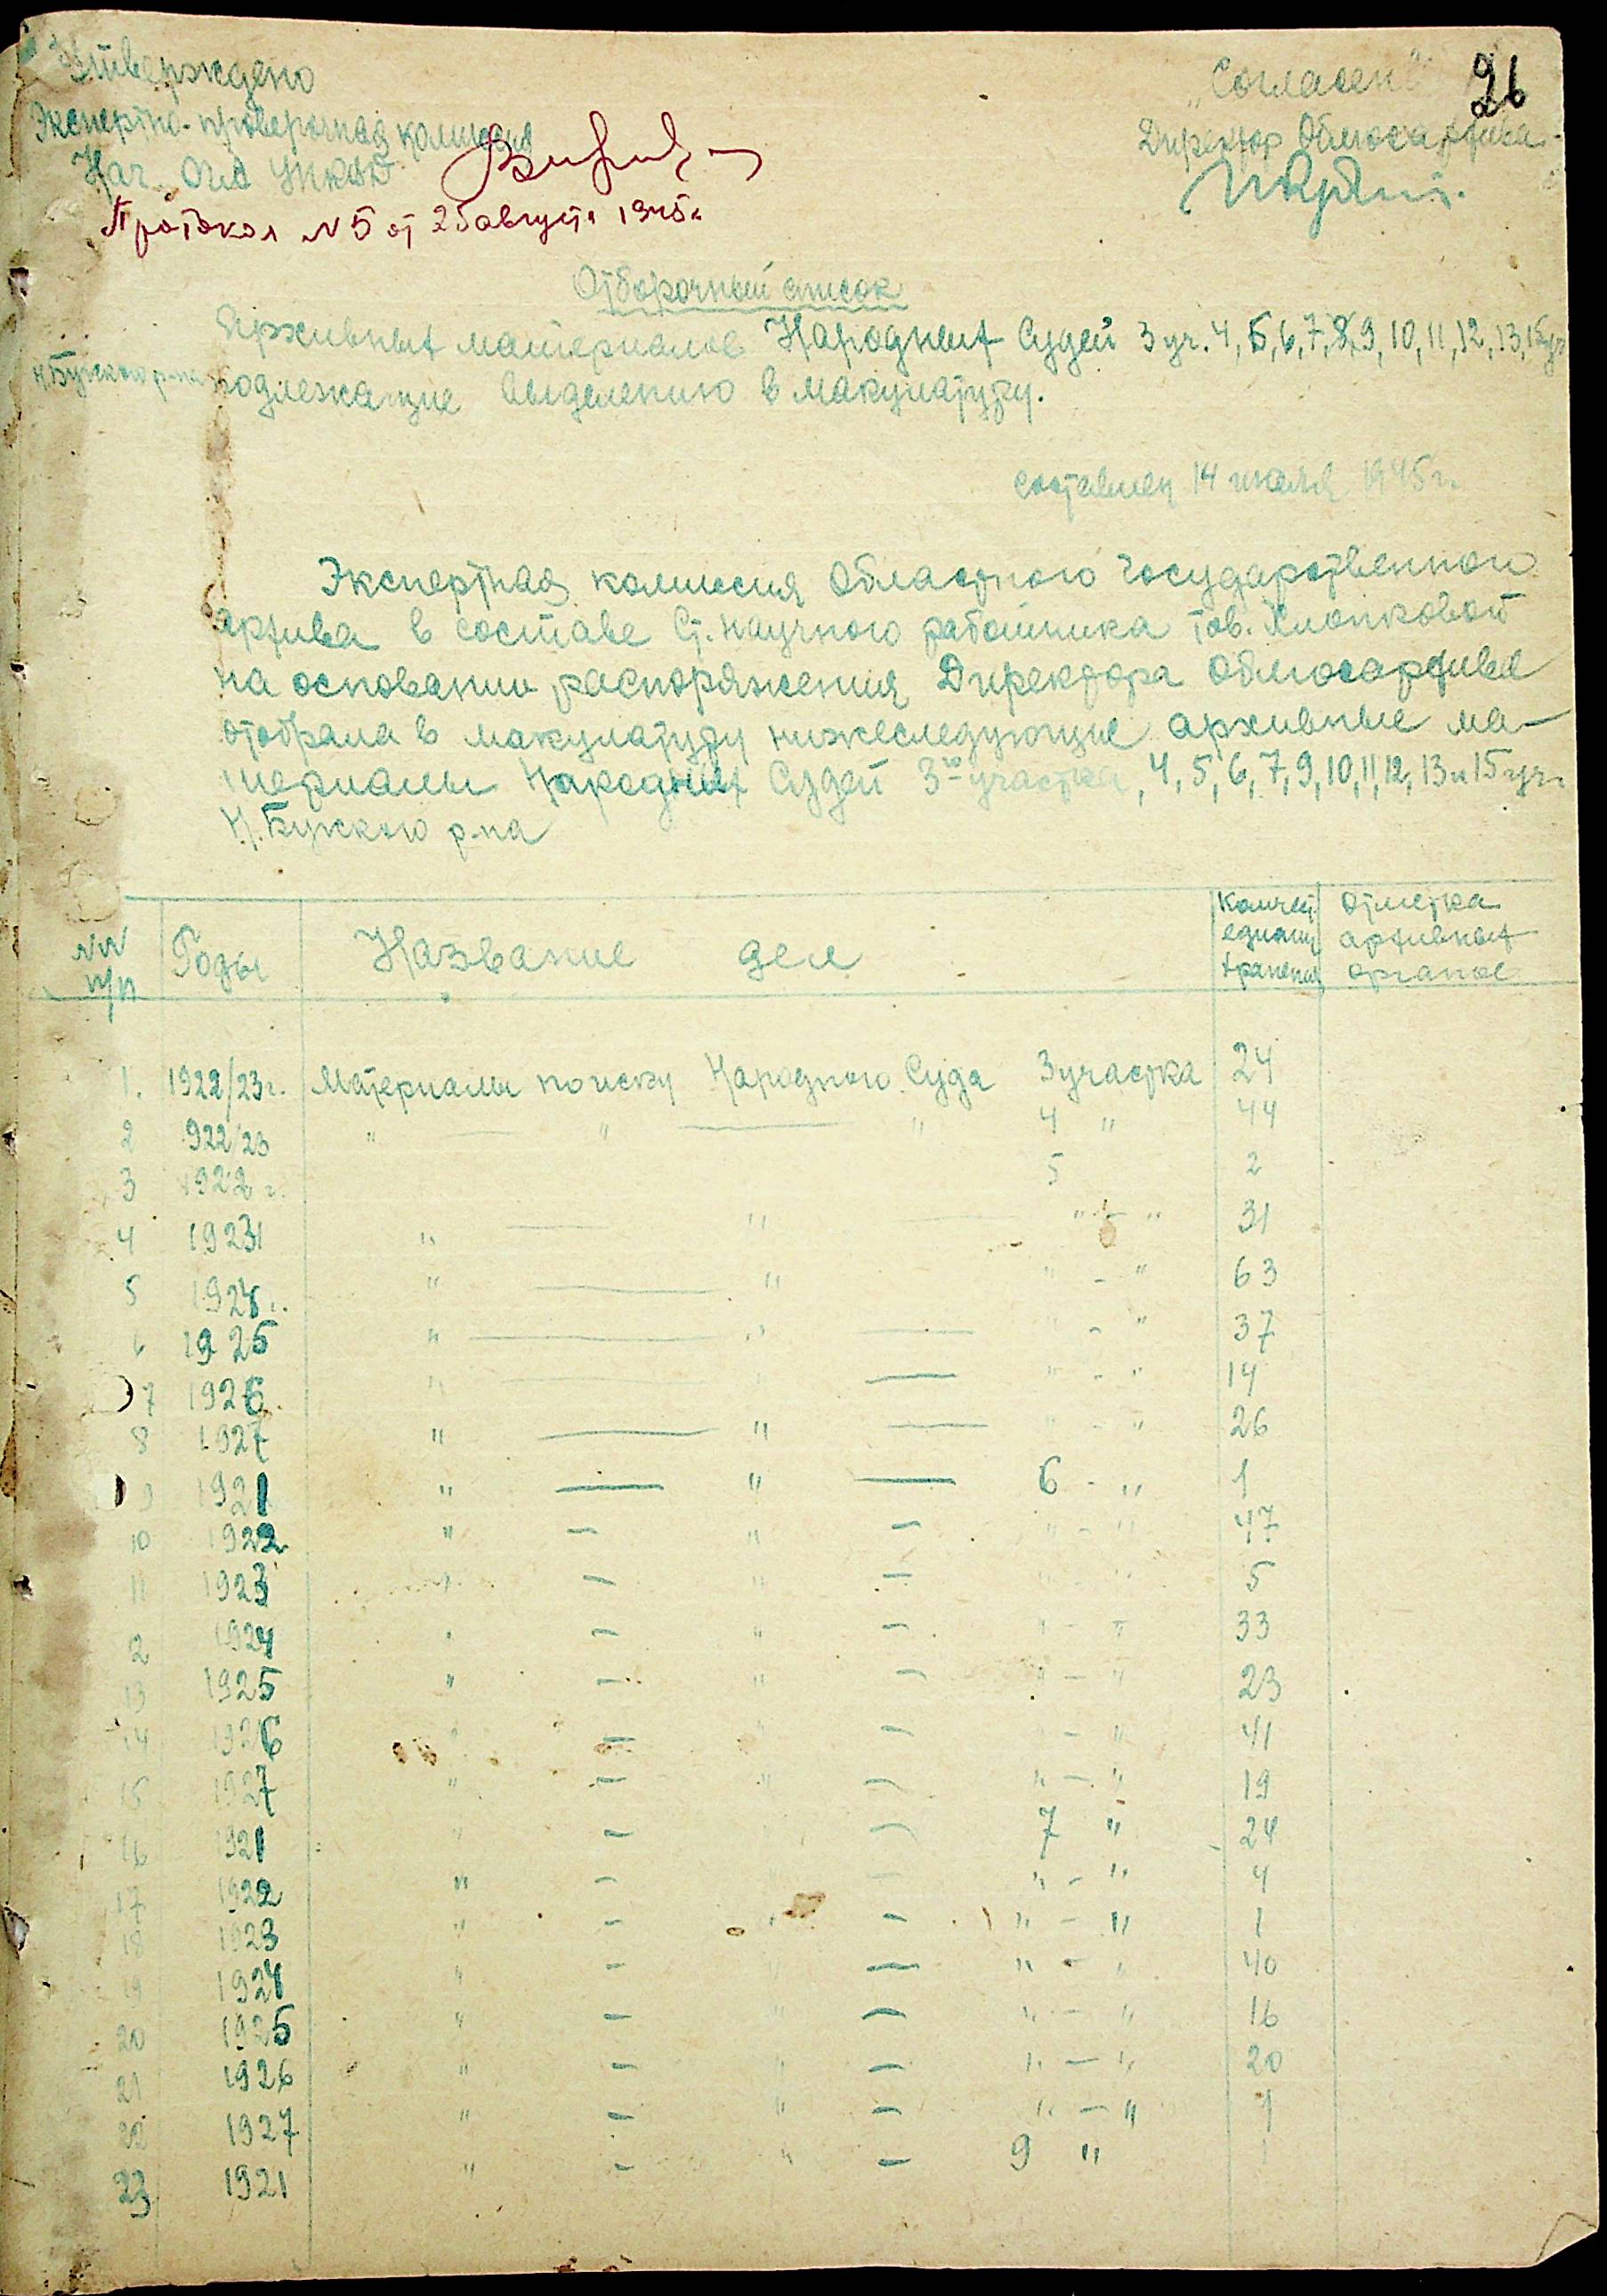 Утверждено
Экспертно-проверочная комиссия
Нач. ОГА УНКВД
Протокол N 5 от 25 августа 1945 г.
"Согласен"
26
Директор Облгосархива
Отборочный список
Архивных материалов Народных Судей 3 уч. 4, 5, 6, 7, 8, 9, 10, 11, 12, 13, 15 уч
Н. Бугского р-на подлежащие выделению в макулатуру.
составлен 14 июля 1945 г.
Экспертная комиссия Областного Государственного
архива в составе Ст. научного работника тов. Хлопковой
на основании распоряжения Директора Облгосархива
отобрала в макулатуру нижеследующие архивные ма-
териалы Народных Судей 3го участка, 4, 5, 6, 7, 9, 10, 11, 12, 13 и 15 уч.
Н. Бугского р-на
NN п/п Годы Название дел Колич. единиц хранения Отметка архивных органов
1. 1922/23 г. Материалы по иску Народного Суда 3 участка 24
2 922/23 " — " — " 4 " 44
3 1922 г. 5 2
4 1923 " — " — " - " 31
5 1924 г. " — " " - " 63
6 1925 " — " — " - " 37
7 1926 " — " — " - " 14
8 1927 " — " — " - " 26
9 1921 " — " — 6 - " 1
10 1922 " — " — " - " 47
11 1923 " — " — " - " 5
12 1924 " — " — " - " 33
13 1925 " — " — " - " 23
14 1926 " — " — " - " 41
15 1927 " — " — " - " 19
16 1921 " — — 7 " 24
17 1922 " — — " - " 4
18 1923 " — " — " - " 1
19 1924 " — " — " - " 40
20 1925 " — " — " - " 16
21 1926 " — " — " - " 20
22 1927 " — " — " - " 1
23 1921 " — " — 9 " 1